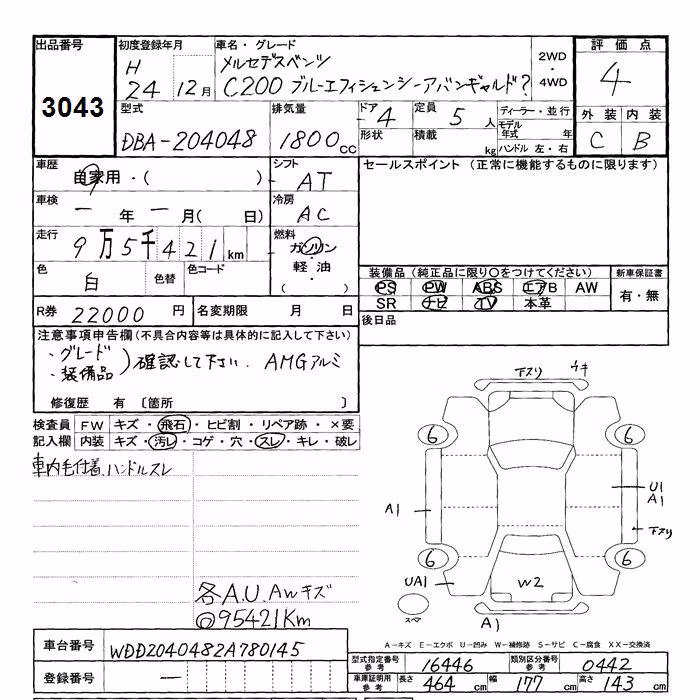 出品番号 初度登録年月 車名・グレード 2WD・4WD 評価点
3043 H 24年 12月 メルセデスベンツ
C200 ブルーエフィシェンシーアバンギャルド? 4
型式 排気量 ドア 定員 ディーラー・並行 外装 内装
DBA-204048 1800cc 4 5人 モデル年式 年 C B
形状 積載 kg ハンドル 左・右
車歴 自家用・( ) シフト AT セールスポイント (正常に機能するものに限ります)
車検 ー年ー月( 日) 冷房 AC
走行 9万5千421km 燃料 ガソリン・軽油 ( )
色 白 色替 色コード 装備品(純正品に限り○をつけてください) 新車保証書
PS PW ABS エアB AW 有・無
SR ナビ TV 本革
R券 22000円 名変期限 月 日 後日品
注意事項申告欄(不具合内容等は具体的に記入して下さい)
・グレード
・装備品 )確認して下さい. AMGアルミ
修復歴 有 〔箇所 〕
検査員 FW キズ・飛石・ヒビ割・リペア跡・×要
記入欄 内装 キズ・汚レ・コゲ・穴・スレ・キレ・破レ
車内毛付着、ハンドルスレ
下スリ ウキ
6 6
A1 U1
A1
下スリ
6 6
UA1 W2
スペア A1
各A.U.Awキズ
@95421Km
A-キズ E-エクボ U-凹み W-補修跡 S-サビ C-腐食 XX-交換済
車台番号 WDD2040482A780145
型式指定番号 参考 16446 類別区分番号 参考 0442
登録番号 ー 車庫証明用 参考 長さ 464cm 幅 177cm 高さ 143cm